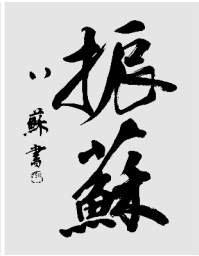 振蘇
八蘇書